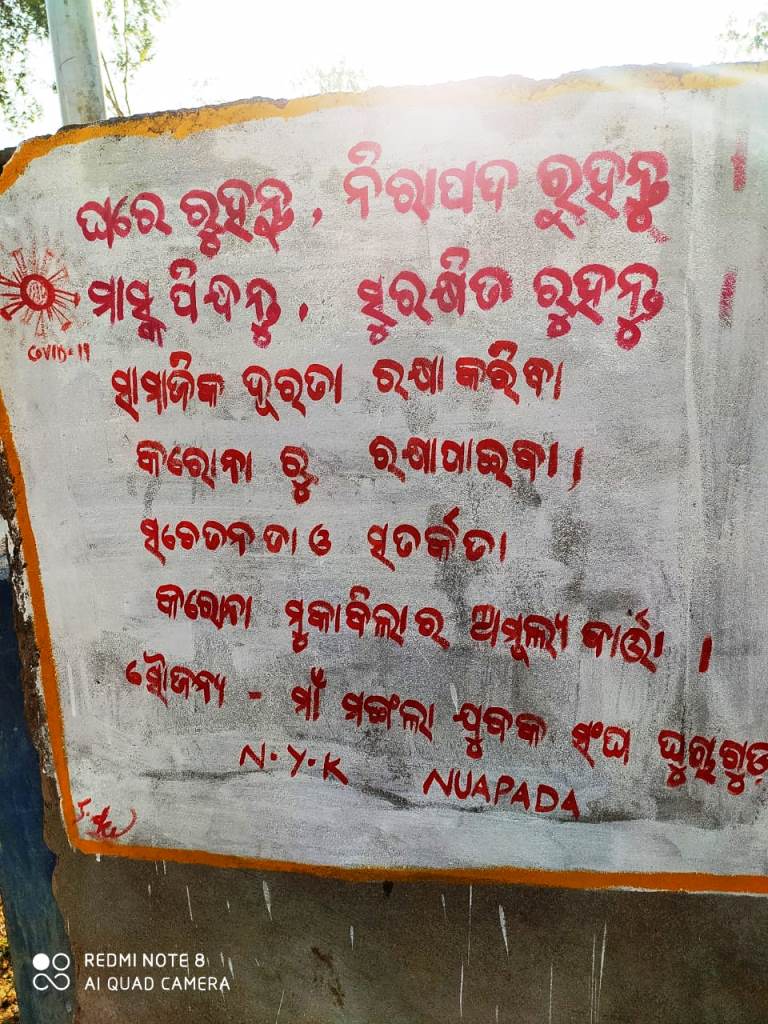 ଘରେ ରୁହନ୍ତୁ, ନିରାପଦ ରୁହନ୍ତୁ ।
ମାସ୍କ ପିନ୍ଧନ୍ତୁ, ସୁରକ୍ଷିତ ରୁହନ୍ତୁ ।
COVID-19
ସାମାଜିକ ଦୂରତା ରକ୍ଷା କରିବା
କରୋନା ରୁ ରକ୍ଷାପାଇବା ।
ସଚେତନତା ଓ ସତର୍କତା
କରୋନା ମୁକାବିଲାର ଅମୂଲ୍ୟ ବାର୍ତ୍ତା ।
ସୌଜନ୍ୟ - ମାଁ ମଙ୍ଗଳା ଯୁବକ ସଂଘ
N.Y.K NUAPADA
REDMI NOTE 8
AI QUAD CAMERA